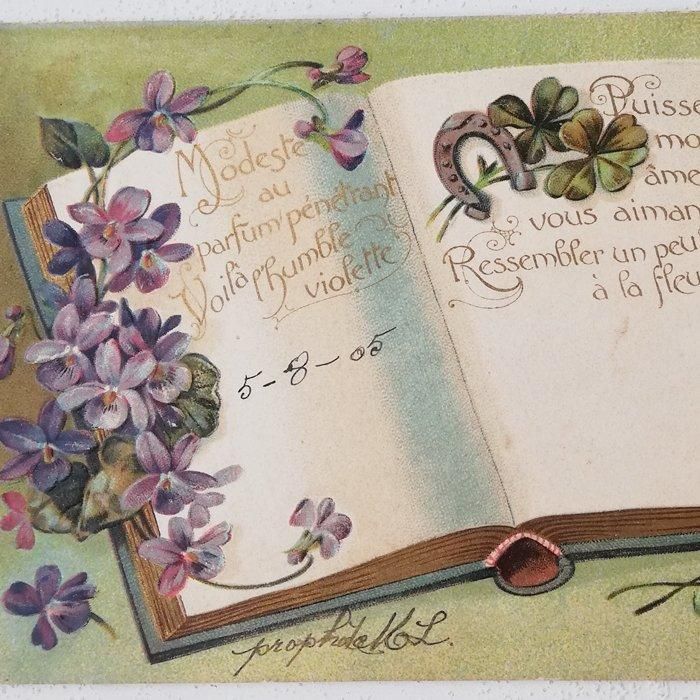 Modeste
au
parfum pénétrant
Voilà l'humble
violette
5-8-05
Puisse
mo
âme
vous aiman
Ressembler un peu
à la fleu